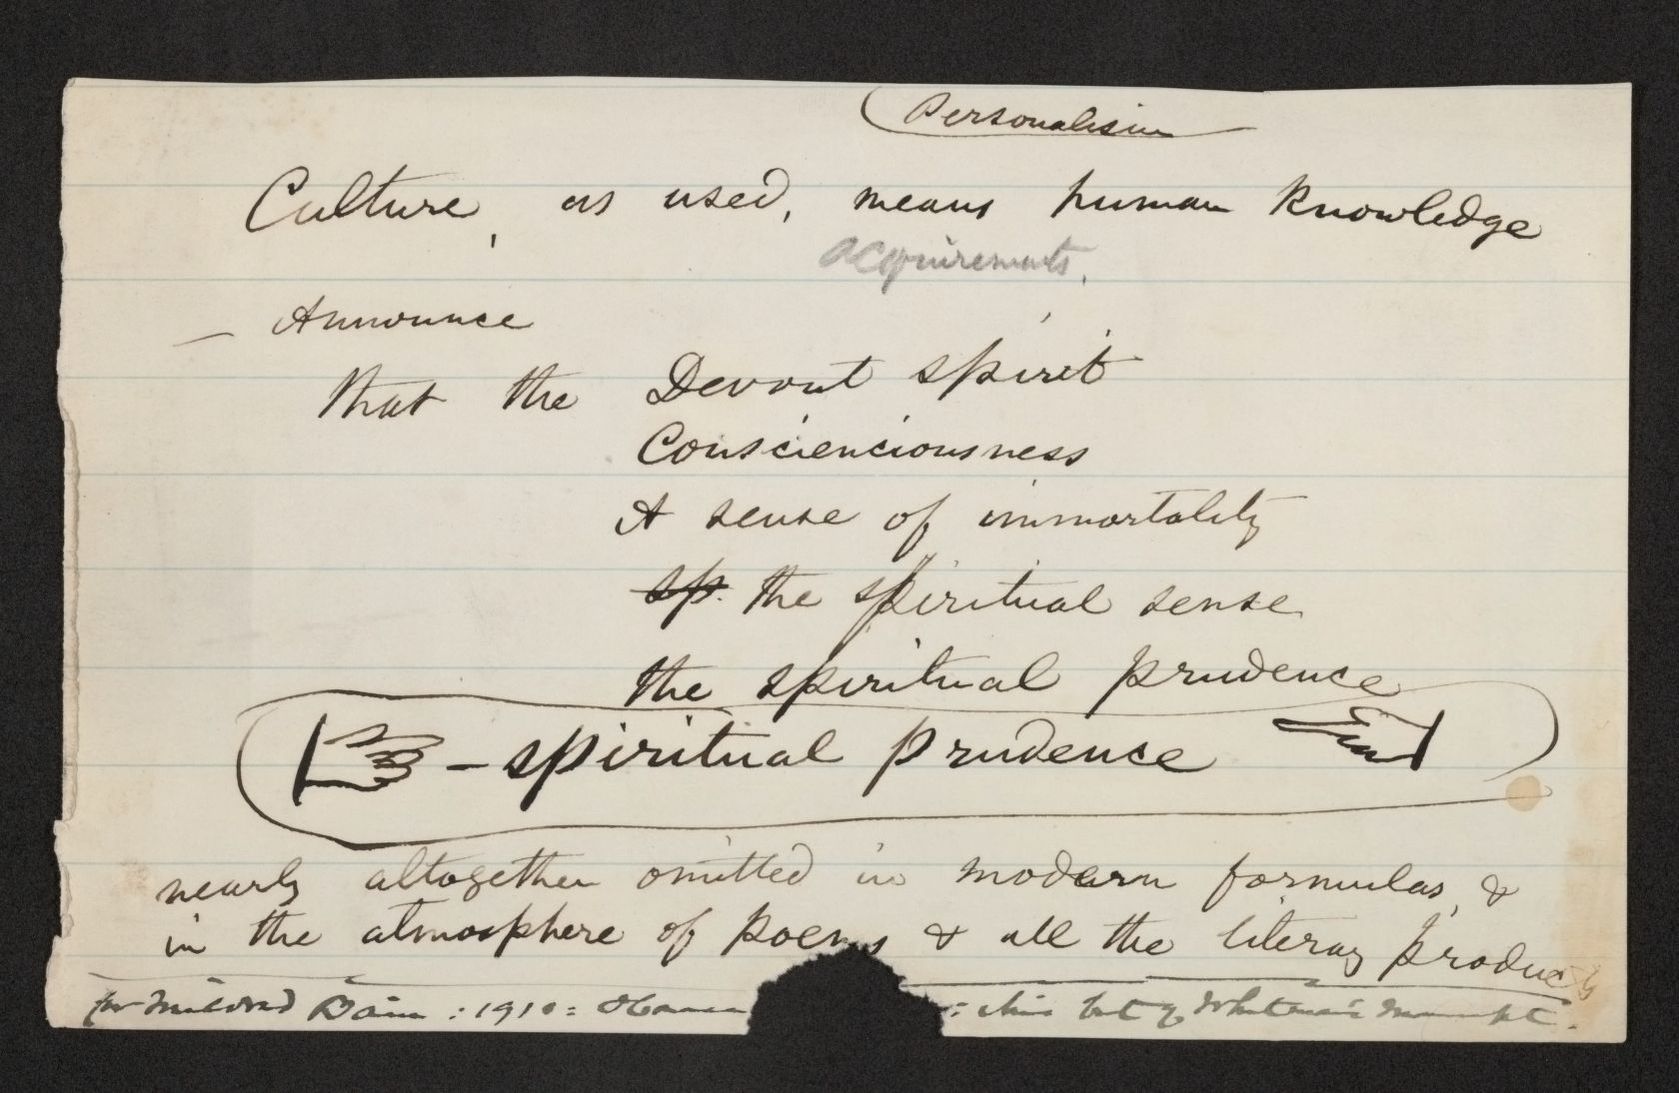 Personalism
Culture, as used, means human knowledge
acquirements.
— Announce
that the Devout spirit
Conscienciousness
A sense of immortality
sp. the spiritual sense
the spiritual prudence
— spiritual prudence
nearly altogether omitted in modern formulas, &
in the atmosphere of poems & all the literary products
for Mildred Bain : 1910 : : this bit of Whitman's manuscript.